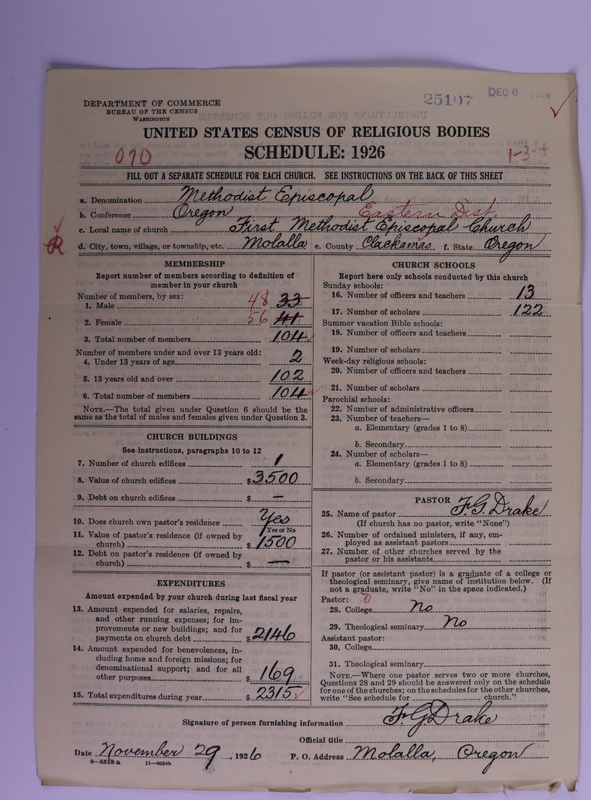 DEPARTMENT OF COMMERCE
BUREAU OF THE CENSUS
WASHINGTON
25107
DEC 6
UNITED STATES CENSUS OF RELIGIOUS BODIES
070
SCHEDULE: 1926
1-3
FILL OUT A SEPARATE SCHEDULE FOR EACH CHURCH. SEE INSTRUCTIONS ON THE BACK OF THIS SHEET
a. Denomination Methodist Episcopal
b. Conference Oregon Eastern Dist
c. Local name of church First Methodist Episcopal Church
R
d. City, town, village, or township, etc. Molalla e. County Clackamas f. State Oregon
MEMBERSHIP
Report number of members according to definition of
member in your church
Number of members, by sex:
1. Male 48 33
2. Female 56 41
3. Total number of members 104
Number of members under and over 13 years old:
4. Under 13 years of age 2
5. 13 years old and over 102
6. Total number of members 104
NOTE.—The total given under Question 6 should be the
same as the total of males and females given under Question 3.
CHURCH BUILDINGS
See instructions, paragraphs 10 to 12
7. Number of church edifices 1
8. Value of church edifices $ 3500
9. Debt on church edifices $ —
10. Does church own pastor's residence Yes
Yes or No
11. Value of pastor's residence (if owned by
church) $ 1500
12. Debt on pastor's residence (if owned by
church) $ —
EXPENDITURES
Amount expended by your church during last fiscal year
13. Amount expended for salaries, repairs,
and other running expenses; for im-
provements or new buildings; and for
payments on church debt $ 2146
14. Amount expended for benevolences, in-
cluding home and foreign missions; for
denominational support; and for all
other purposes $ 169
15. Total expenditures during year $ 2315
CHURCH SCHOOLS
Report here only schools conducted by this church
Sunday schools:
16. Number of officers and teachers 13
17. Number of scholars 122
Summer vacation Bible schools:
18. Number of officers and teachers
19. Number of scholars
Week-day religious schools:
20. Number of officers and teachers
21. Number of scholars
Parochial schools:
22. Number of administrative officers
23. Number of teachers—
a. Elementary (grades 1 to 8)
b. Secondary
24. Number of scholars—
a. Elementary (grades 1 to 8)
b. Secondary
PASTOR
25. Name of pastor F. G. Drake
(If church has no pastor, write "None")
26. Number of ordained ministers, if any, em-
ployed as assistant pastors
27. Number of other churches served by the
pastor or his assistants
If pastor (or assistant pastor) is a graduate of a college or
theological seminary, give name of institution below. (If
not a graduate, write "No" in the space indicated.)
Pastor: 0
28. College No
29. Theological seminary No
Assistant pastor:
30. College
31. Theological seminary
NOTE.—Where one pastor serves two or more churches,
Questions 28 and 29 should be answered only on the schedule
for one of the churches; on the schedules for the other churches,
write "See schedule for church."
Signature of person furnishing information F. G. Drake
Official title
Date November 29, 1926 P. O. Address Molalla, Oregon